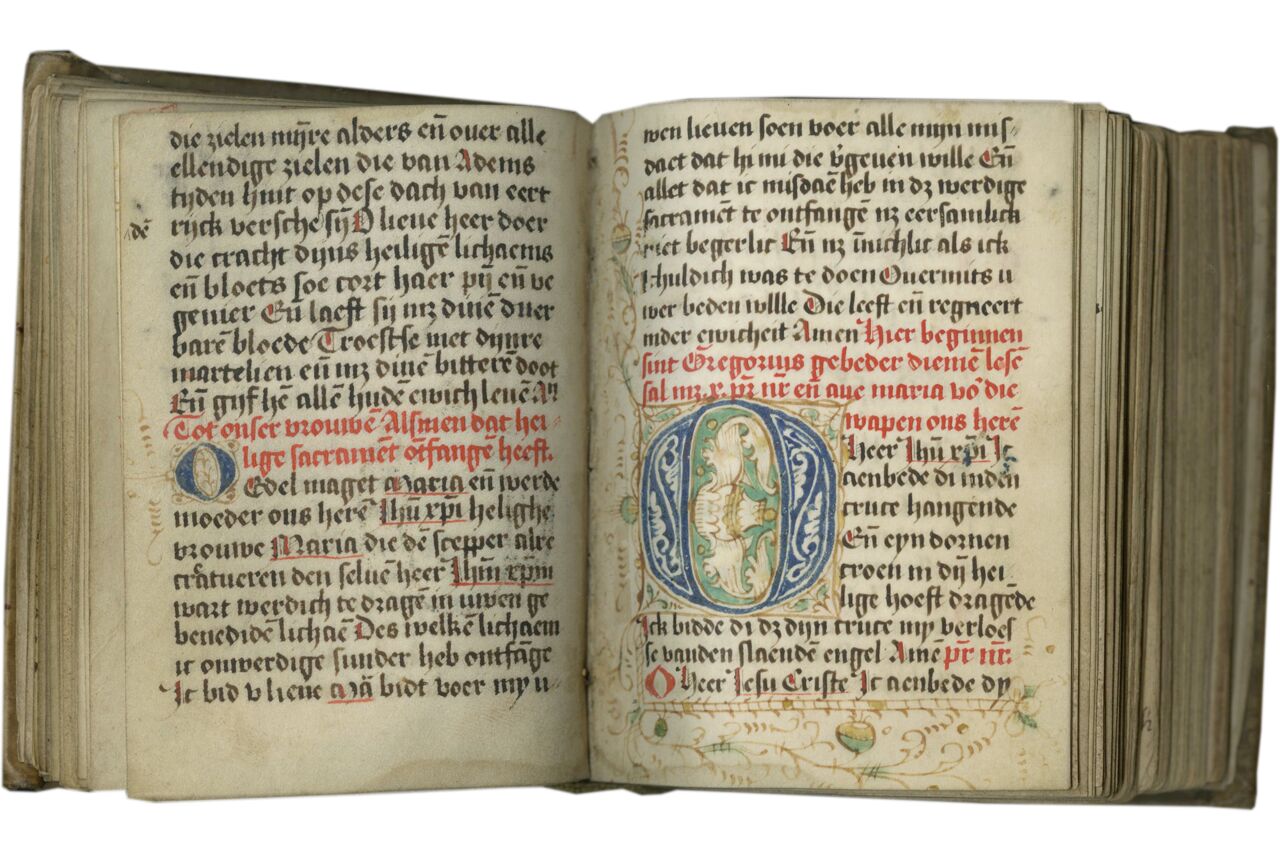 die zielen mijre alders en̄ ouer alle
ellendige zielen die van Adems
tijden huit op dese dach van eert
dē
rijck versche sij O lieue heer doer
die cracht dijns heiligē lichaems
en̄ bloets soe cort haer pij en̄ ve
geuier En̄ laeft sij mz dinē duer
barē bloede Troestse met dijnre
martelien en̄ mz dinē bitterē doot
En̄ gijf hē allē hudē ewich leuē Am̄
Tot onser vrouwē Alsmen dat hei
lige sacramēt ōtfangē heeft.
O Edel maget Maria en̄ werde
moeder ons herē Ihū xp̄i helighe
vrouwe Maria die dē scepper alre
creatueren den seluē heer Ihm̄ xp̄m
wart werdich te dragē in uwen ge
benedidē lichaē Des welkē lichaem
ic onwerdige sunder heb ontfāge
Ic bid v lieue Mā bidt voer my u
wen lieuen soen voer alle mijn mis
daet dat hi mi die v̄geuen wille En̄
allet dat ic misdaē heb in dz werdige
sacramēt te ontfangē nz eersamlick
niet begerlic En̄ nz īnichlic als ick
schuldich was te doen Ouermits u
wer beden wllle Die leeft en̄ regneert
inder ewicheit Amen Hier beginnen
sint Gregorius gebeder diemē lesē
sal mz .x. pr̄ nr̄ en̄ aue maria vō die
wapen ons herē
O Heer Ihū xp̄i Ic
aenbede di inden
cruce hangende
En̄ eyn dornen
croen in dij hei
lige hoeft dragēde
Ick bidde di dz dijn cruce my verloes
se vanden slaendē engel Amē pr̄ nr̄.
O Heer Jesu Criste Ic aenbede dy